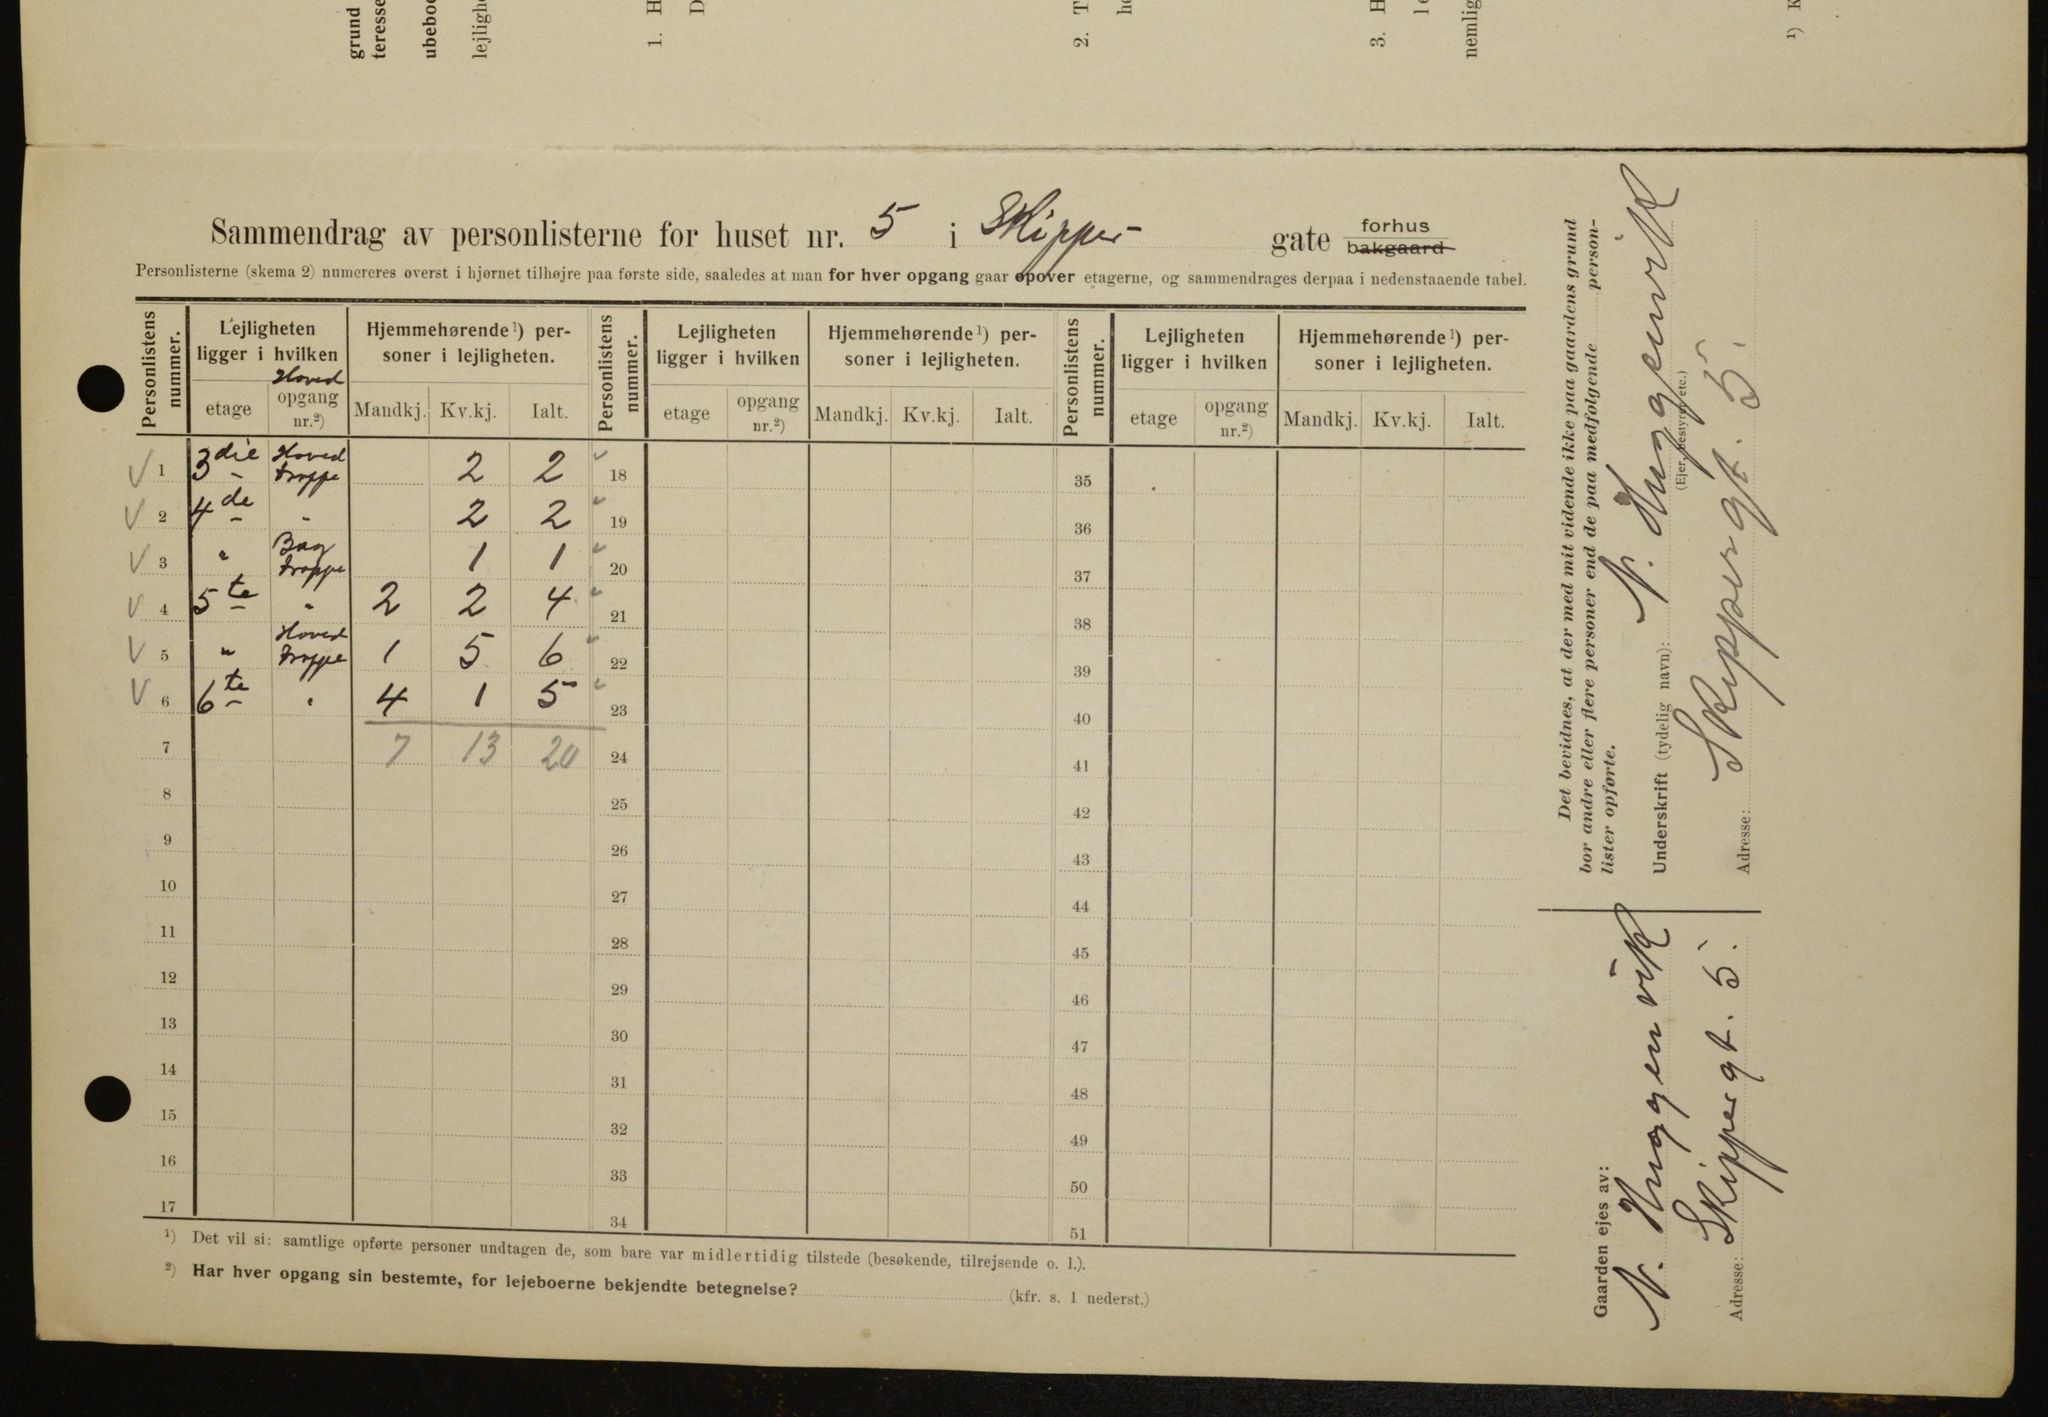 grund
teresse
ubeboe
lejlighe
1. H
D
2. T
he
3. H
le
nemlig
¹) K
Sammendrag av personlisterne for huset nr. 5 i Skipper gate forhus bakgaard
Personlisterne (skema 2) numereres øverst i hjørnet tilhøjre paa første side, saaledes at man for hver opgang gaar opover etagerne, og sammendrages derpaa i nedenstaaende tabel.
Personlistens nummer. Lejligheten ligger i hvilken Hjemmehørende¹) personer i lejligheten. Personlistens nummer. Lejligheten ligger i hvilken Hjemmehørende¹) personer i lejligheten. Personlistens nummer. Lejligheten ligger i hvilken Hjemmehørende¹) personer i lejligheten.
Hoved
etage opgang nr.²) Mandkj. Kv.kj. Ialt. etage opgang nr.²) Mandkj. Kv.kj. Ialt. etage opgang nr.²) Mandkj. Kv.kj. Ialt.
1 3die Hoved trappe 2 2 18 35
2 4de " 2 2 19 36
3 " Bag trappe 1 1 20 37
4 5te " 2 2 4 21 38
5 " Hoved trappe 1 5 6 22 39
6 6te " 4 1 5 23 40
7 7 13 20 24 41
8 25 42
9 26 43
10 27 44
11 28 45
12 29 46
13 30 47
14 31 48
15 32 49
16 33 50
17 34 51
¹) Det vil si: samtlige opførte personer undtagen de, som bare var midlertidig tilstede (besøkende, tilrejsende o. l.).
²) Har hver opgang sin bestemte, for lejeboerne bekjendte betegnelse? (kfr. s. 1 nederst.)
Det bevidnes, at der med mit vidende ikke paa gaardens grund
bor andre eller flere personer end de paa medfølgende person-
lister opførte.
Underskrift (tydelig navn): N. Huggenvik
(Ejer, bestyrer etc.)
Adresse: Skippergt. 5.
Gaarden ejes av:
N. Huggenvik
Adresse: Skippergt. 5.